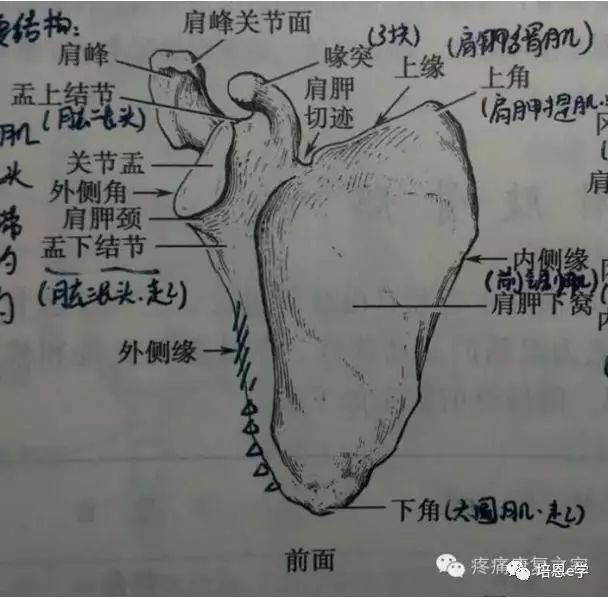 要结构:
肩峰关节面
肩峰
喙突
(3块)
上缘
(肩胛舌骨肌)
上角
盂上结节
(肱二长头)
肩胛
切迹
(肩胛提肌
肌
头
关节盂
外侧角
肩胛颈
肩
带
盂下结节
(肱三长头.起点)
内侧缘
内
肩胛下窝
外侧缘
下角(大圆肌.起点)
前面
疼痛康复之家
培恩e学